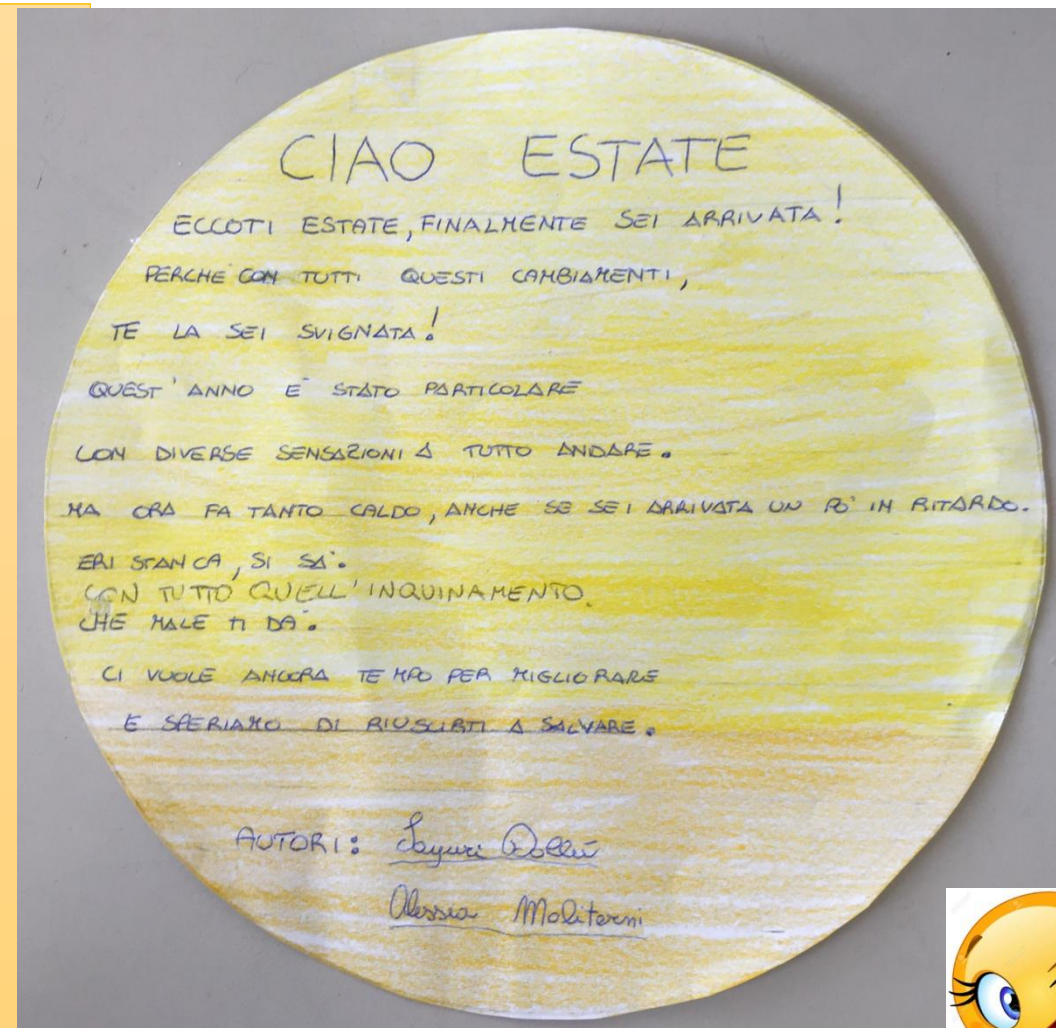 CIAO ESTATE
ECCOTI ESTATE, FINALMENTE SEI ARRIVATA!
PERCHÉ CON TUTTI QUESTI CAMBIAMENTI,
TE LA SEI SVIGNATA!
QUEST'ANNO È STATO PARTICOLARE
CON DIVERSE SENSAZIONI A TUTTO ANDARE.
MA ORA FA TANTO CALDO, ANCHE SE SEI ARRIVATA UN PO' IN RITARDO.
ERI STANCA, SI SÀ.
CON TUTTO QUELL'INQUINAMENTO.
CHE MALE TI DÀ.
CI VUOLE ANCORA TEMPO PER MIGLIORARE
E SPERIAMO DI RIUSCIRTI A SALVARE.
AUTORI: Sayuri
Alessia Moliterni